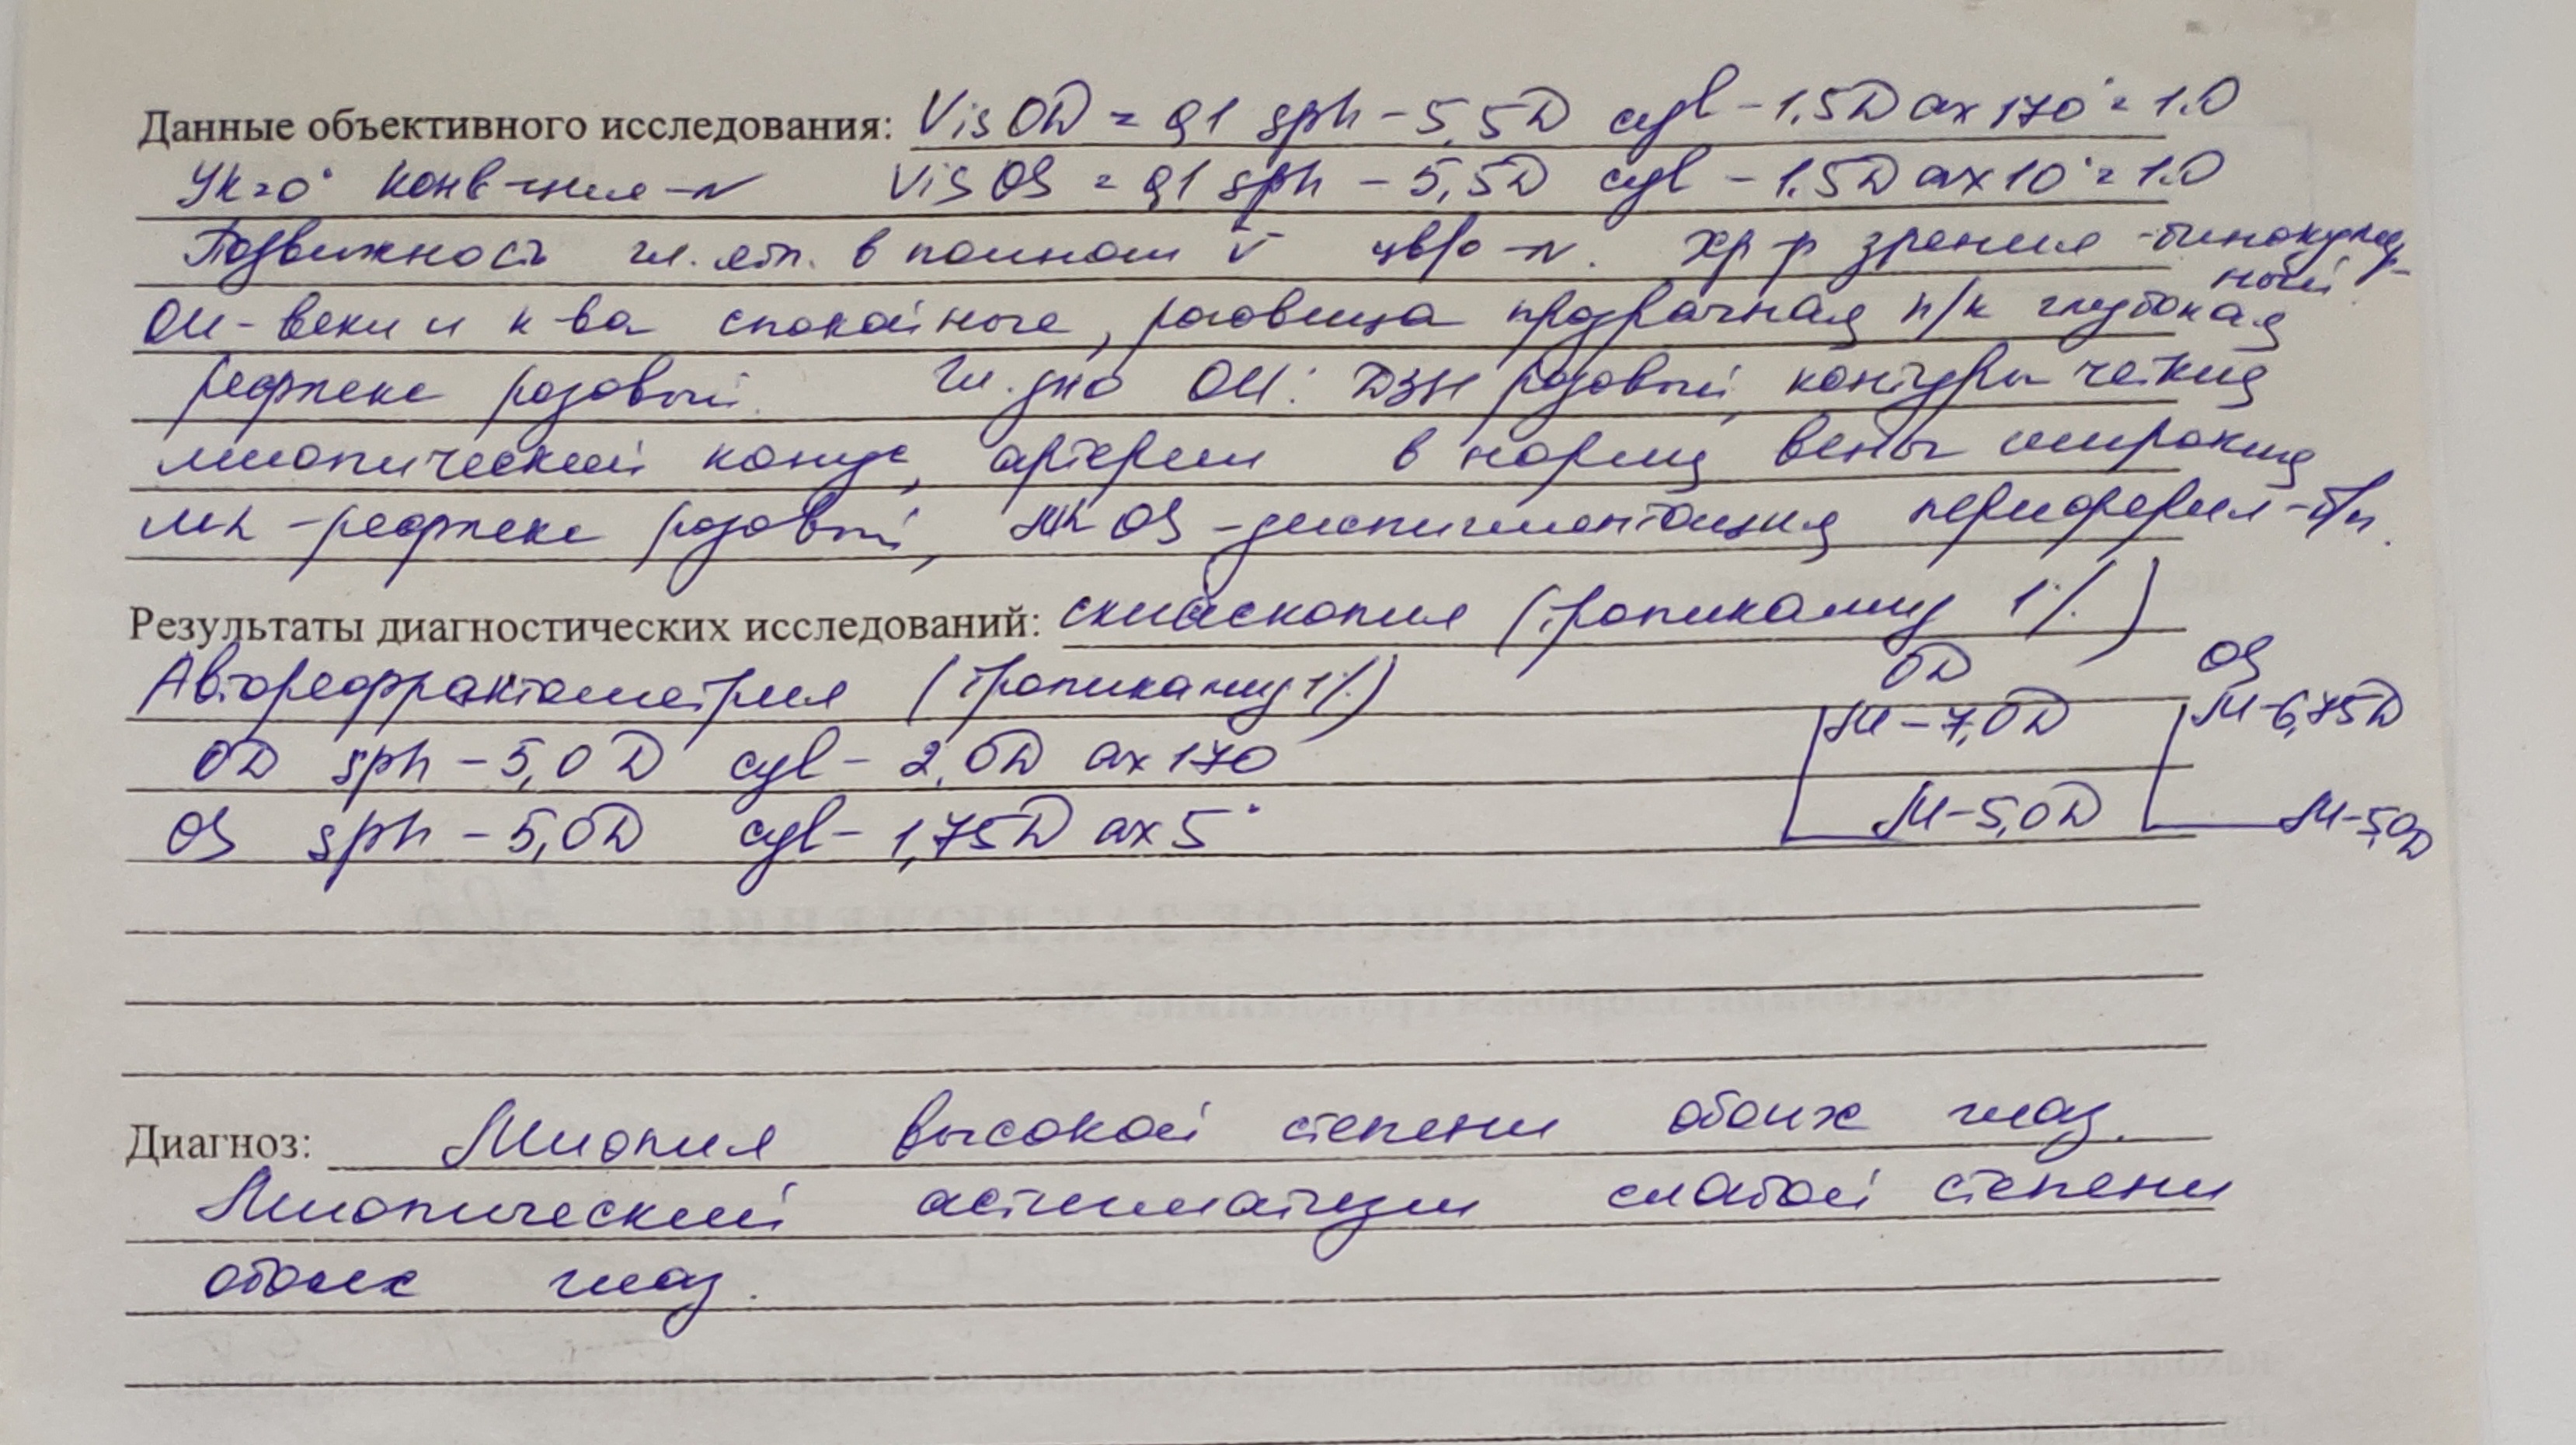 Данные объективного исследования: Vis OD = 0,1 sph – 5,5D cyl – 1.5D ax 170° = 1.0
УК=0° конв-ция – N Vis OS = 0,1 sph – 5,5D cyl – 1.5D ax 10° = 1.0
Подвижность гл. ябл. в полном V цв/о – N. Хр-р зрения – бинокуляр-
ный.
OU – веки и к-ва спокойные, роговица прозрачная п/к глубокая
рефлекс розовый. Гл. дно OU: ДЗН розовый, контуры четкие
миопический конус, артерии в норме, вены широкие
Mh – рефлекс розовый, Mh OS – диспигментация периферия – б/п.
Результаты диагностических исследований: скиаскопия (тропикамид 1%)
Авторефрактометрия (тропикамид 1%) OD OS
OD sph – 5,0D cyl – 2,0D ax 170 M – 7,0D M – 6,75D
OS sph – 5,0D cyl – 1,75D ax 5° M – 5,0D M – 5,0D
Диагноз: Миопия высокой степени обоих глаз.
Миопический астигматизм слабой степени
обоих глаз.